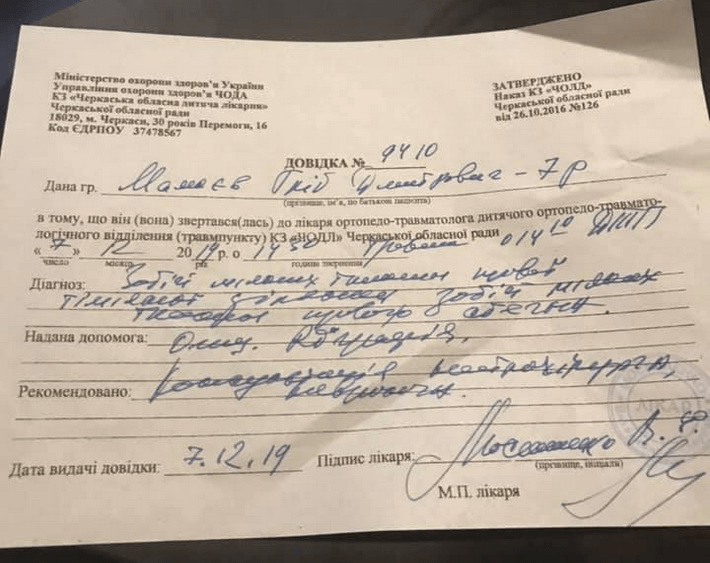 Міністерство охорони здоров'я України
Управління охорони здоров'я ЧОДА
КЗ «Черкаська обласна дитяча лікарня»
Черкаської обласної ради
18029, м. Черкаси, 30 років Перемоги, 16
Код ЄДРПОУ 37478567
ЗАТВЕРДЖЕНО
Наказ КЗ «ЧОЛД»
Черкаської обласної ради
від 26.10.2016 №126
ДОВІДКА № 9410
Дана гр. Дмитрович - 7р
(прізвище, ім'я, по батькові пацієнта)
в тому, що він (вона) звертався(лась) до лікаря ортопедо-травматолога дитячого ортопедо-травмато-
логічного відділення (травмпункту) КЗ «ЧОДЛ» Черкаської обласної ради
« 7 » 12 2019 р. о 14 30 о 14 10 ДТП
число місяць рік година звернення
Діагноз: Забій мяких тканин
забій мяких
тканин правого
Надана допомога: Огляд. Rграфія.
Рекомендовано: Консультація нейрохірурга,
Дата видачі довідки: 7.12.19 Підпис лікаря:
(прізвище, ініціали)
М.П. лікаря
ЛІКАР